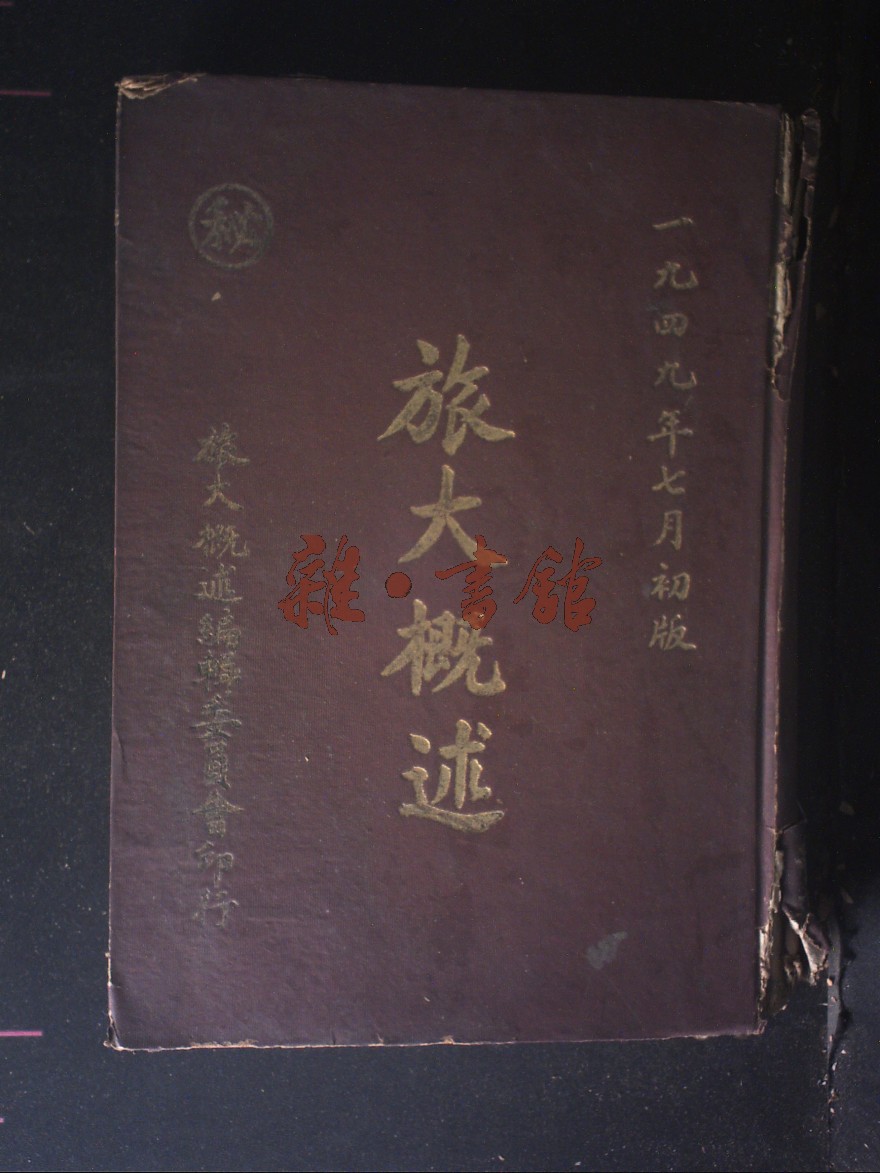 一九四九年七月初版
旅大概述
秘
旅大概述編輯委員會印行
雜·書館